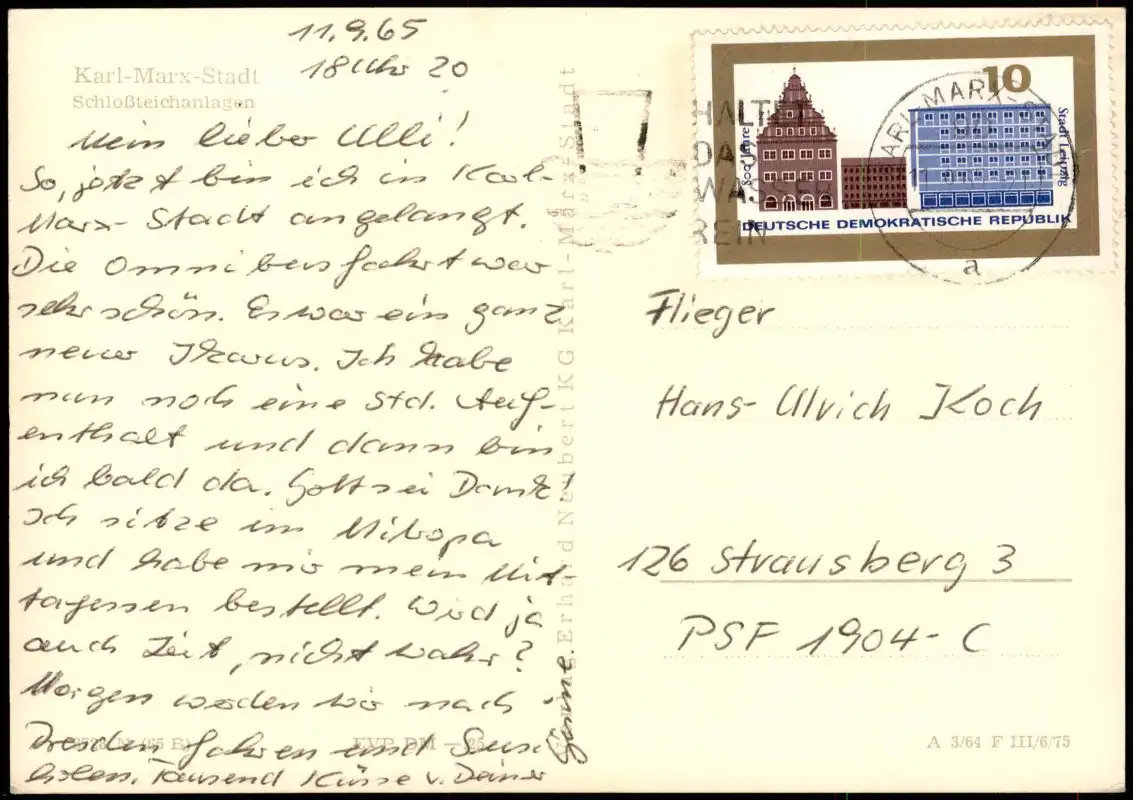 11.9.65
18 Uhr 20
Karl-Marx-Stadt
Schloßteichanlagen
Mein lieber Ulli!
So, jetzt bin ich in Karl-
Marx-Stadt angelangt.
Die Omnibusfahrt war
sehr schön. Es war ein ganz
neuer Ikarus. Ich habe
nun noch eine Std. Auf-
enthalt und dann bin
ich bald da. Gott sei Dank!
Ich sitze im Mitropa
und habe mir mein Mit-
tagessen bestellt. Wird ja
auch Zeit, nicht wahr?
Morgen werden wir nach
Dresden fahren und
holen. Tausend Küsse v. Deiner
EVP DM -,25
Erhard Neubert KG Karl-Marx-Stadt
HALTET
DAS
WASSER
REIN
KARL-MARX-STADT
a
10
800 Jahre
Stadt Leipzig
DEUTSCHE DEMOKRATISCHE REPUBLIK
Flieger
Hans-Ulrich Koch
126 Strausberg 3
PSF 1904-C
A 3/64 F III/6/75